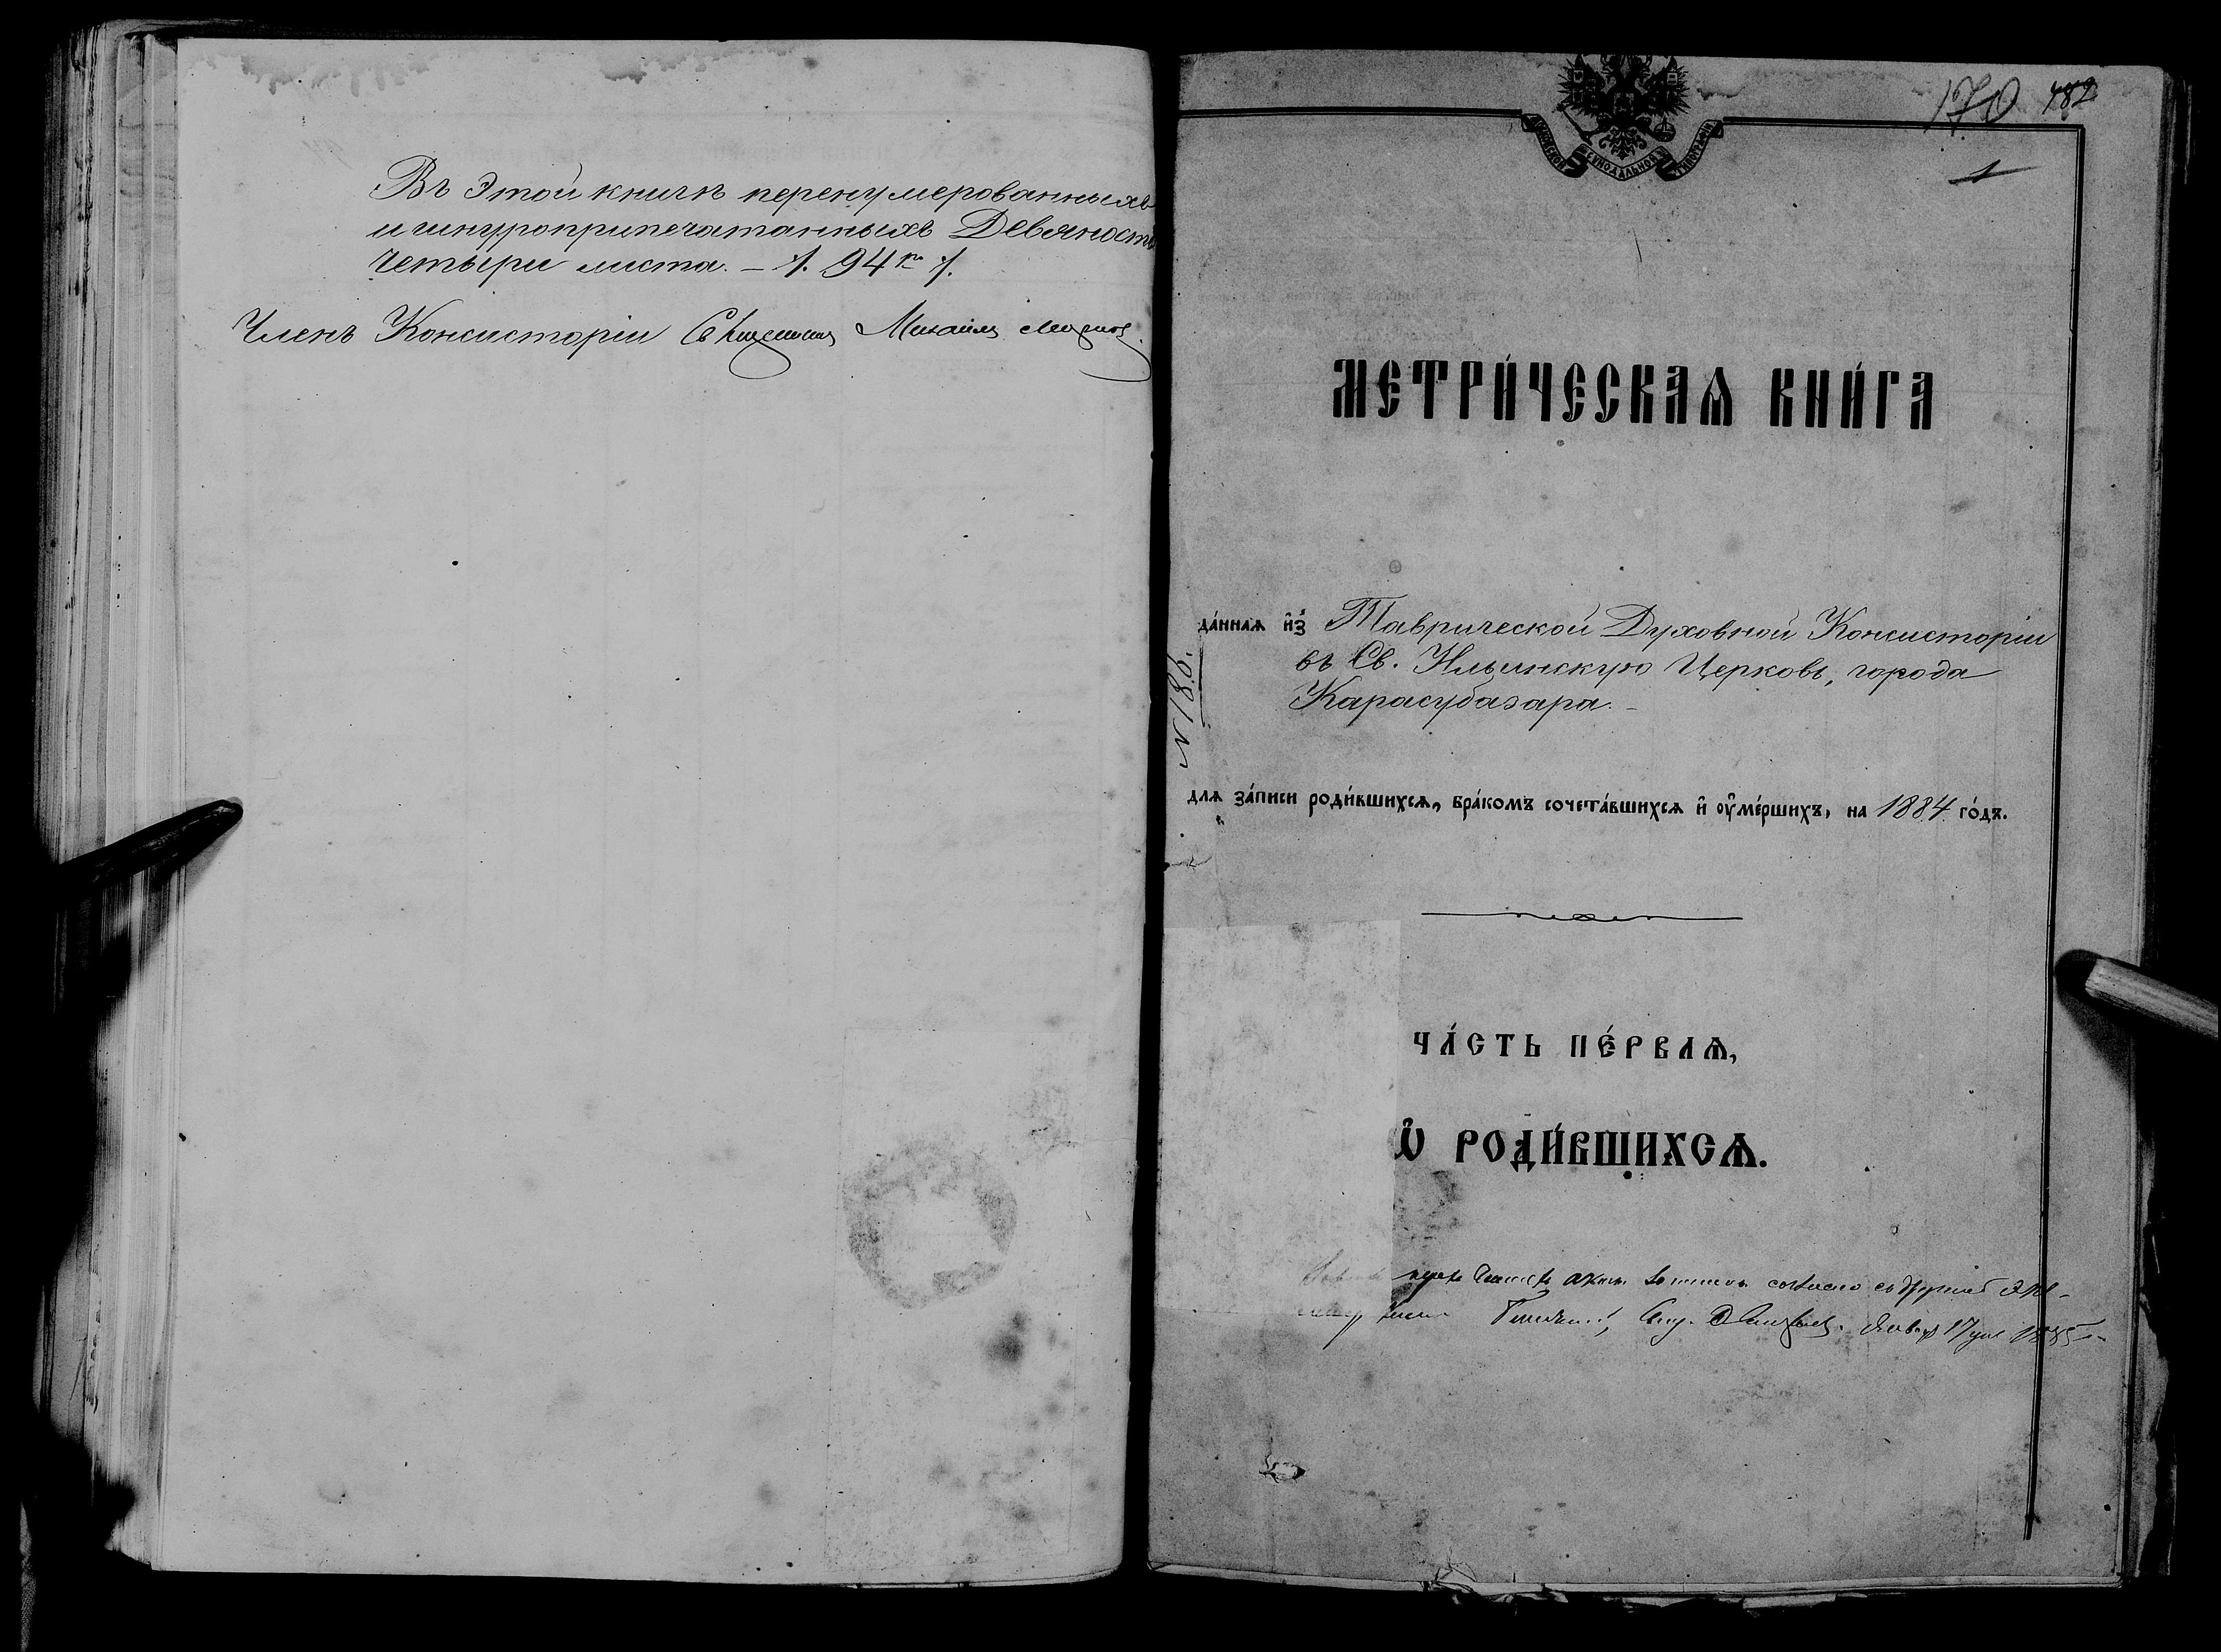 Въ этой книгѣ перенумерованныхъ
и шнуроприпечатанныхъ Девяносто
четыри листа. – /. 94 /.
Членъ Консисторіи Священникъ Михаилъ
170 482
1
СѴНОДАЛЬНОЙ ТИПОГРАФІИ
МЕТРИ́ЧЕСКАѦ КНИ́ГА
да́ннаѧ и҆з̾ Таврической Духовной Консисторіи
въ Св. Ильинскую Церковь, города
Карасубазара. –
№ 186.
длѧ за́писи роди́вшихсѧ, бра́комъ сочета́вшихсѧ и҆ оу҆ме́ршихъ, на 1884 го́дъ.
ЧА́СТЬ ПЕ́РВАѦ,
Ѽ РОДИ́ВШИХСѦ.
согласно
17 1885